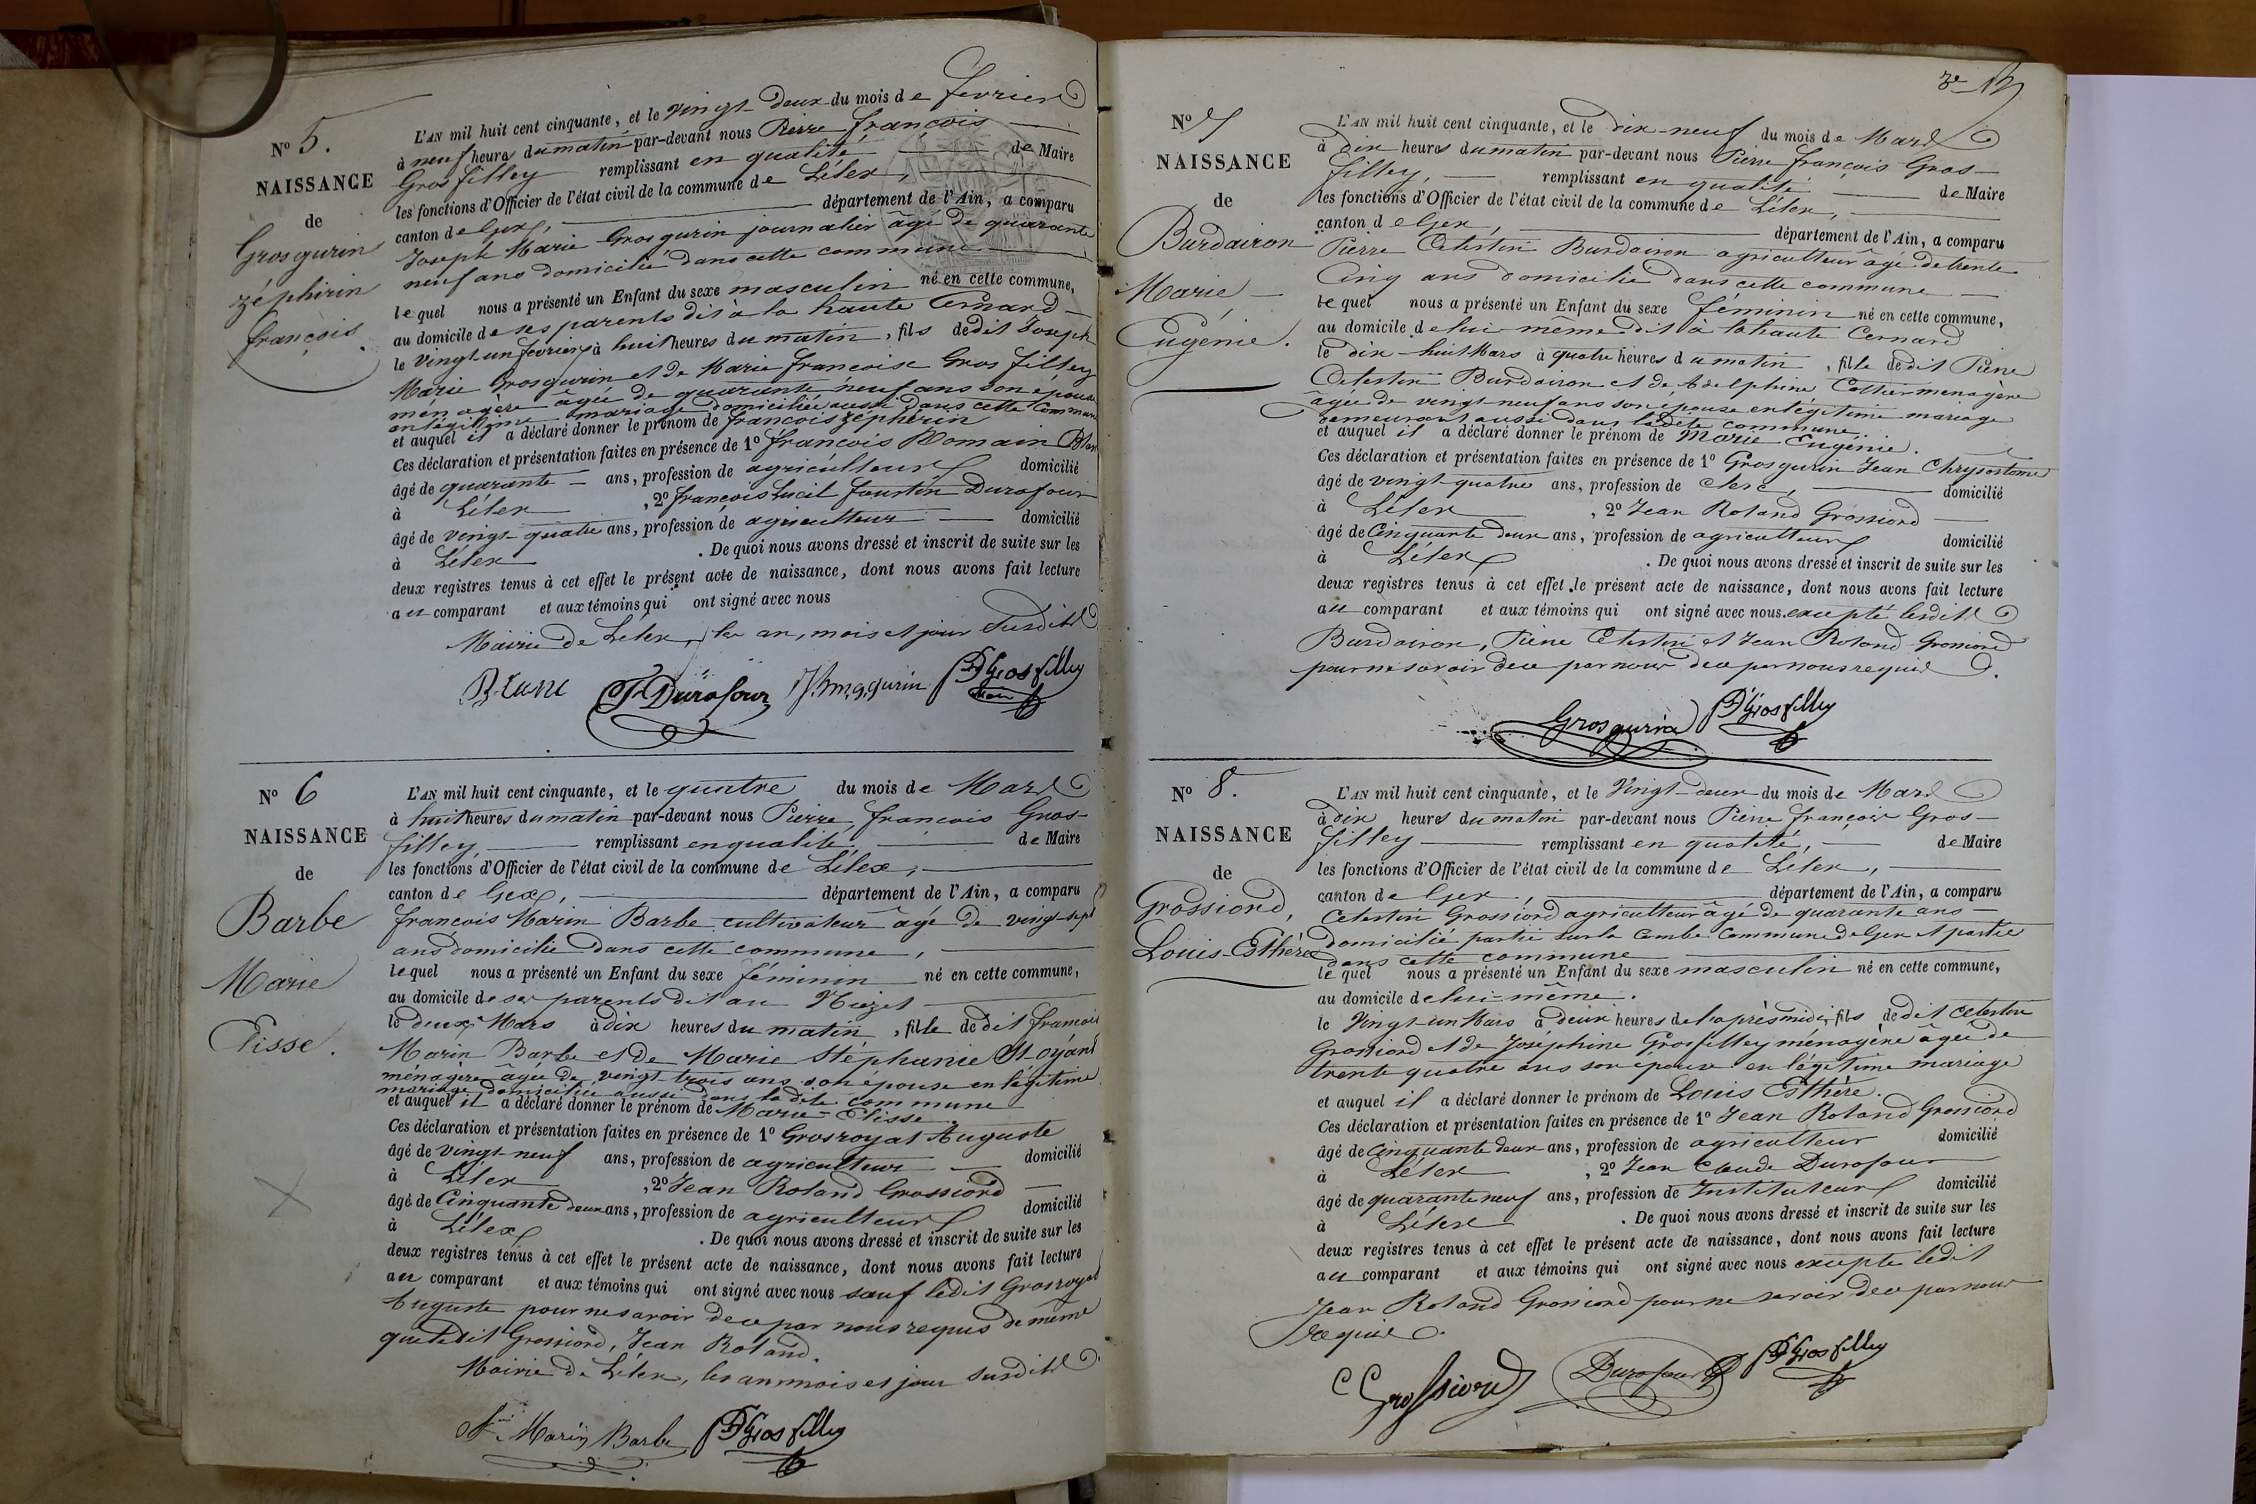 N.º 5.
NAISSANCE
de
Grosgurin
zéphirin
françois
L'AN mil huit cent cinquante, et le vingt-deux du mois de fevrier
à neuf heures du matin par-devant nous Pierre françois
Grosfilley remplissant en qualité de Maire
les fonctions d'Officier de l'état civil de la commune de Lélex,
canton de Gex, département de l'Ain, a comparu
Joseph Marie Grosgurin journalier âgé de quarante
neuf ans domicilié dans cette commune
lequel nous a présenté un Enfant du sexe masculin né en cette commune,
au domicile de ses parents dit à la haute Cernard
le vingt un fevrier à huit heures du matin, fils dedit Joseph
Marie Grosgurin et de Marie françoise Gros filley
ménagère âgée de quarante neuf ans son épouse
en légitime mariage domiciliée aussi dans cette commune
et auquel il a déclaré donner le prénom de françois zéphirin
Ces déclaration et présentation faites en présence de 1º françois Romain Blanc
âgé de quarante ans, profession de agriculteur domicilié
à Lélex, 2º françois Lucil faustin Durafour
âgé de vingt-quatre ans, profession de agriculteur domicilié
à Lélex. De quoi nous avons dressé et inscrit de suite sur les
deux registres tenus à cet effet le présent acte de naissance, dont nous avons fait lecture
au comparant et aux témoins qui ont signé avec nous
Mairie de Lélex, les an, mois et jour susdits
Blanc F. Durafour J.h m.g.gurin Pf Grosfilley
N.º 6
NAISSANCE
de
Barbe
Marie
Elisse.
L'AN mil huit cent cinquante, et le quatre du mois de Mars
à huit heures du matin par-devant nous Pierre françois Gros-
filley, remplissant en qualité, de Maire
les fonctions d'Officier de l'état civil de la commune de Lélex,
canton de Gex, département de l'Ain, a comparu
françois Marin Barbe cultivateur âgé de vingt-sept
ans domicilié dans cette commune,
lequel nous a présenté un Enfant du sexe féminin né en cette commune,
au domicile de ses parents dit au
le deux Mars à dix heures du matin, fille dedit francois
Marin Barbe et de Marie Stéphanie St-oyant
ménagère âgée de vingt-trois ans son épouse en légitime
mariage domiciliée aussi dans ladite commune
et auquel il a déclaré donner le prénom de Marie-Elisse.
Ces déclaration et présentation faites en présence de 1º Grosroyat Auguste
âgé de vingt-neuf ans, profession de agriculteur domicilié
à Lélex, 2º Jean Roland Grossiord
âgé de Cinquante deux ans, profession de agriculteur domicilié
à Lélex. De quoi nous avons dressé et inscrit de suite sur les
deux registres tenus à cet effet le présent acte de naissance, dont nous avons fait lecture
au comparant et aux témoins qui ont signé avec nous sauf ledit Grosroyat
Auguste pour ne savoir de ce par nous requis de même
que ledit Grossiord, Jean Roland.
Mairie de Lélex, les an mois et jour susdits
f.ois Marin Barbe Pf Grosfilley
N.º 7
NAISSANCE
de
Burdairon
Marie
Eugénie.
L'AN mil huit cent cinquante, et le dix-neuf du mois de Mars
à dix heures du matin par-devant nous Pierre françois Gros-
filley, remplissant en qualité de Maire
les fonctions d'Officier de l'état civil de la commune de Lélex,
canton de Gex, département de l'Ain, a comparu
Pierre Celestin Burdairon agriculteur âgé de trente
Cinq ans domicilié dans cette commune
lequel nous a présenté un Enfant du sexe féminin né en cette commune,
au domicile de lui même dit à la haute Cernard
le dix-huit Mars à quatre heures du matin, fille dedit Pierre
Celestin Burdairon et de Adelphine Cottier menagère
âgée de vingt-neuf ans son épouse en légitime mariage
demeurant aussi dans ladite commune
et auquel il a déclaré donner le prénom de Marie Eugénie.
Ces déclaration et présentation faites en présence de 1º Grosgurin Jean Chrysostome
âgé de vingt-quatre ans, profession de clerc, domicilié
à Lélex, 2º Jean Roland Grossiord
âgé de Cinquante deux ans, profession de agriculteur domicilié
à Lélex. De quoi nous avons dressé et inscrit de suite sur les
deux registres tenus à cet effet le présent acte de naissance, dont nous avons fait lecture
au comparant et aux témoins qui ont signé avec nous excepté lesdits
Burdairon, Pierre Celestin et Jean Roland Grossiord
pour ne savoir de ce par nous de ce par nous requis.
Grosgurin Pf Grosfilley
N.º 8.
NAISSANCE
de
Grossiord,
Louis-Esthère
L'AN mil huit cent cinquante, et le Vingt-deux du mois de Mars
à dix heures du matin par-devant nous Pierre françois Gros-
filley remplissant en qualité, de Maire
les fonctions d'Officier de l'état civil de la commune de Lélex,
canton de Gex, département de l'Ain, a comparu
Celestin Grossiord agriculteur âgé de quarante ans
domicilié partie sur la Combe Commune de Gex et partie
dans cette commune
lequel nous a présenté un Enfant du sexe masculin né en cette commune,
au domicile de lui-même.
le Vingt-un Mars à deux heures de l'après midi, fils dedit Celestin
Grossiord et de Joséphine Grosfilley ménagère âgée de
trente quatre ans son épouse en légitime mariage
et auquel il a déclaré donner le prénom de Louis Esthère.
Ces déclaration et présentation faites en présence de 1º Jean Roland Grossiord
âgé de Cinquante deux ans, profession de agriculteur domicilié
à Lélex, 2º Jean Claude Durafour
âgé de quarante neuf ans, profession de Instituteur domicilié
à Lélex. De quoi nous avons dressé et inscrit de suite sur les
deux registres tenus à cet effet le présent acte de naissance, dont nous avons fait lecture
au comparant et aux témoins qui ont signé avec nous excepté ledit
Jean Roland Grossiord pour ne savoir de ce par nous
requis.
C Grossiord Durafour Pf Grosfilley